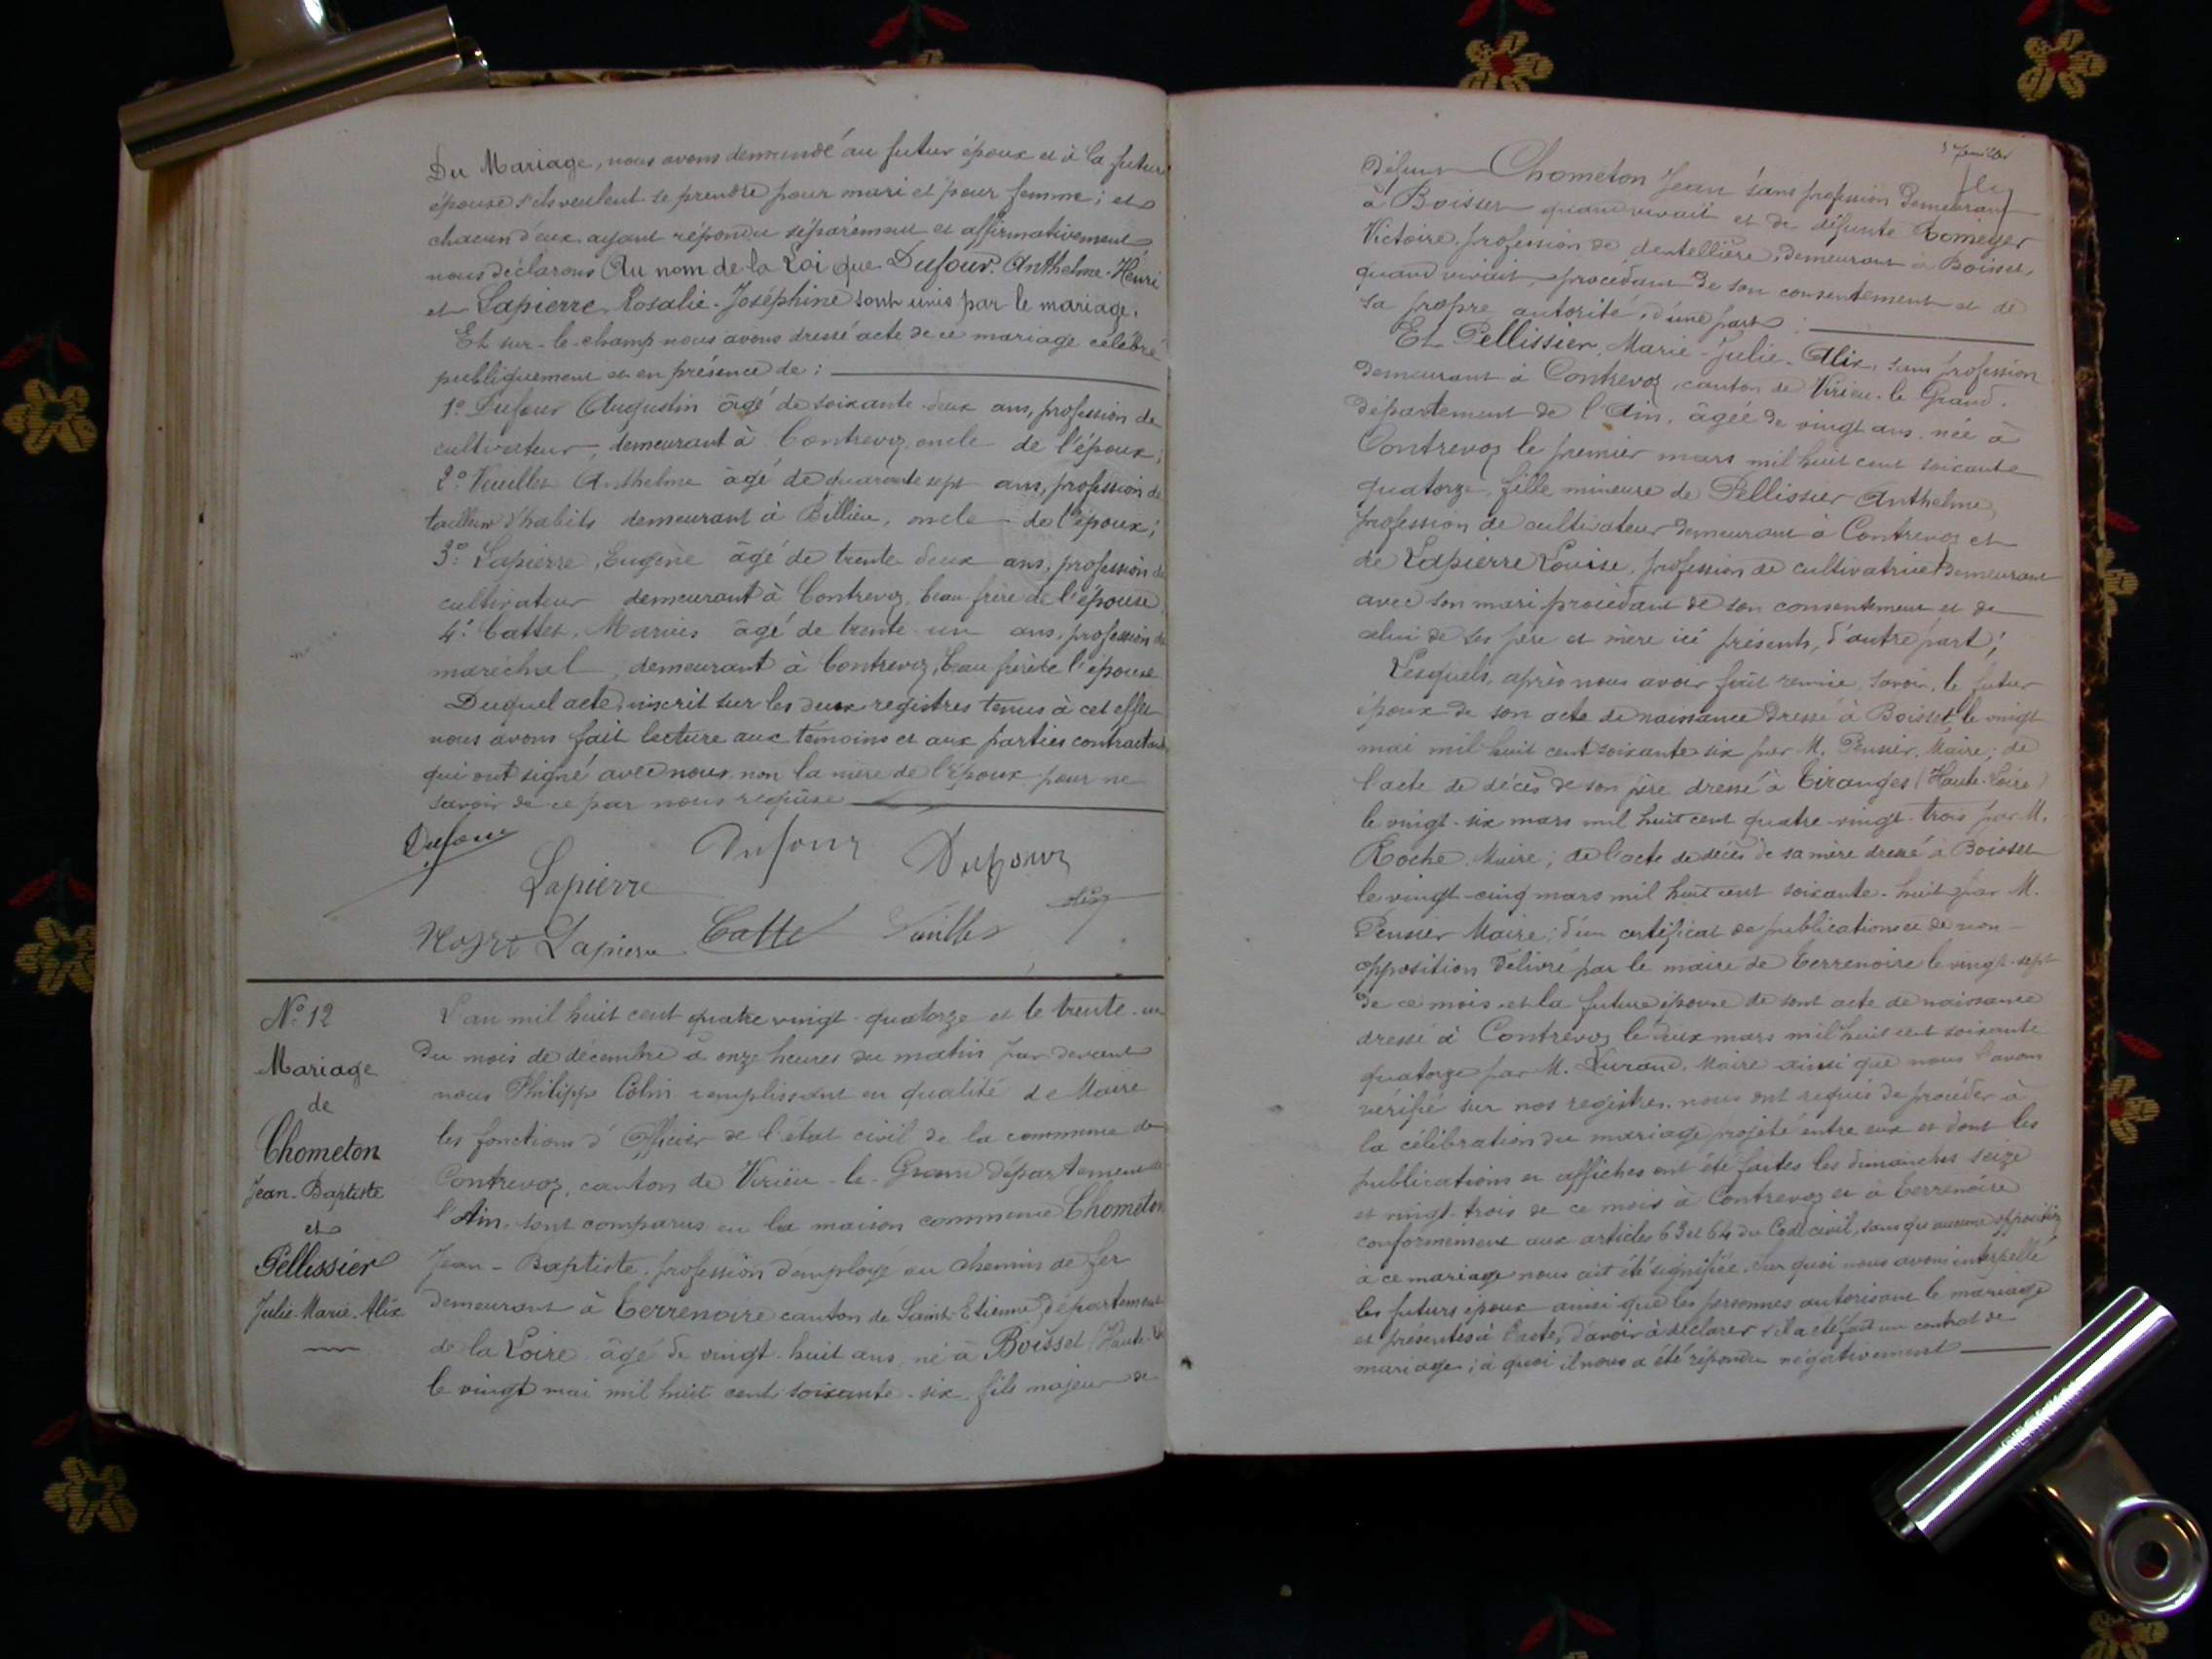 Du Mariage, nous avons demandé au futur époux et à la future
épouse s'ils veulent se prendre pour mari et pour femme ; et
chacun d'eux ayant répondu séparément et affirmativement
nous déclarons Au nom de la Loi que Dufour Anthelme-Henri
et Lapierre Rosalie-Joséphine sont unis par le mariage.
Et sur-le-champ nous avons dressé acte de ce mariage célébré
publiquement et en présence de :
1º Dufour Augustin âgé de soixante-deux ans, profession de
cultivateur, demeurant à Contrevoz, oncle de l'époux ;
2º Vuillet Anthelme âgé de quarante sept ans, profession de
tailleur d'habits demeurant à Billieu, oncle de l'époux ;
3º Lapierre, Eugène âgé de trente deux ans, profession de
cultivateur demeurant à Contrevoz, beau frère de l'épouse
4º Cattet, Marius âgé de trente-un ans, profession de
maréchal, demeurant à Contrevoz, beau frère de l'épouse
Duquel acte inscrit sur les deux registres tenus à cet effet
nous avons fait lecture aux témoins et aux parties contractantes
qui ont signé avec nous, non la mère de l'époux pour ne
savoir de ce par nous requise
Dufour
Dufour
Dufour
Lapierre
Lapierre Catte Vuillet
Nº 12
Mariage
de
Chometon
Jean-Baptiste
et
Pellissier
Julie-Marie-Alix
L'an mil huit cent quatre vingt-quatorze et le trente-un
du mois de décembre à onze heures du matin par devant
nous Philippe Colin remplissant en qualité de Maire
les fonctions d'Officier de l'état civil de la commune de
Contrevoz, canton de Virieu-le-Grand département de
l'Ain, sont comparus en la maison commune Chometon
Jean-Baptiste, profession d'employé au chemin de fer
demeurant à Terrenoire canton de Saint-Etienne, département
de la Loire âgé de vingt-huit ans, né à Boisset (Haute-
le vingt mai mil huit cent soixante-six, fils majeur de
5e feuillet
Défunt Chometon Jean sans profession demeurant
à Boisset quand vivait et de défunte Romeyer
Victoire, profession de dentellière, demeurant à Boisset,
quand vivait, procédant de son consentement et de
sa propre autorité, d'une part ;
Et Pellissier, Marie-Julie-Alix, sans profession
demeurant à Contrevoz, canton de Virieu-le Grand.
département de l'Ain, âgée de vingt ans, née à
Contrevoz le premier mars mil huit cent soixante
quatorze, fille mineure de Pellissier Anthelme,
profession de cultivateur demeurant à Contrevoz et
de Lapierre Louise, profession de cultivatrice demeurant
avec son mari procédant de son consentement et de
celui de ses père et mère ici présents, d'autre part ;
Lesquels, après nous avoir fait remise, savoir, le futur
époux de son acte de naissance dressé à Boisset, le vingt
mai mil huit cent soixante six par M. Pensier, Maire ; de
l'acte de décès de son père dressé à Tiranges (Haute-Loire)
le vingt-six mars mil huit cent quatre-vingt-trois par M.
Roche, Maire ; de l'acte de décès de sa mère dressé à Boisset
le vingt-cinq mars mil huit cent soixante-huit par M.
Pensier Maire ; d'un certificat de publications et de non-
opposition délivré par le maire de Terrenoire le vingt-sept
de ce mois, et la future épouse de sont acte de naissance
dressé à Contrevoz le deux mars mil huit cent soixante
quatorze par M. Durand, Maire ainsi que nous l'avons
vérifié sur nos registres, nous ont requis de procéder à
la célébration du mariage projeté entre eux et dont les
publications et affiches ont été faites les dimanches seize
et vingt-trois de ce mois à Contrevoz et à Terrenoire
conformément aux articles 63 et 64 du Code civil, sans qu'aucune opposition
à ce mariage nous ait été signifiée. Sur quoi nous avons interpellé
les futurs époux ainsi que les personnes autorisant le mariage
et présentes à l'acte, d'avoir à déclarer s'il a été fait un contrat de
mariage ; à quoi il nous a été répondu négativement